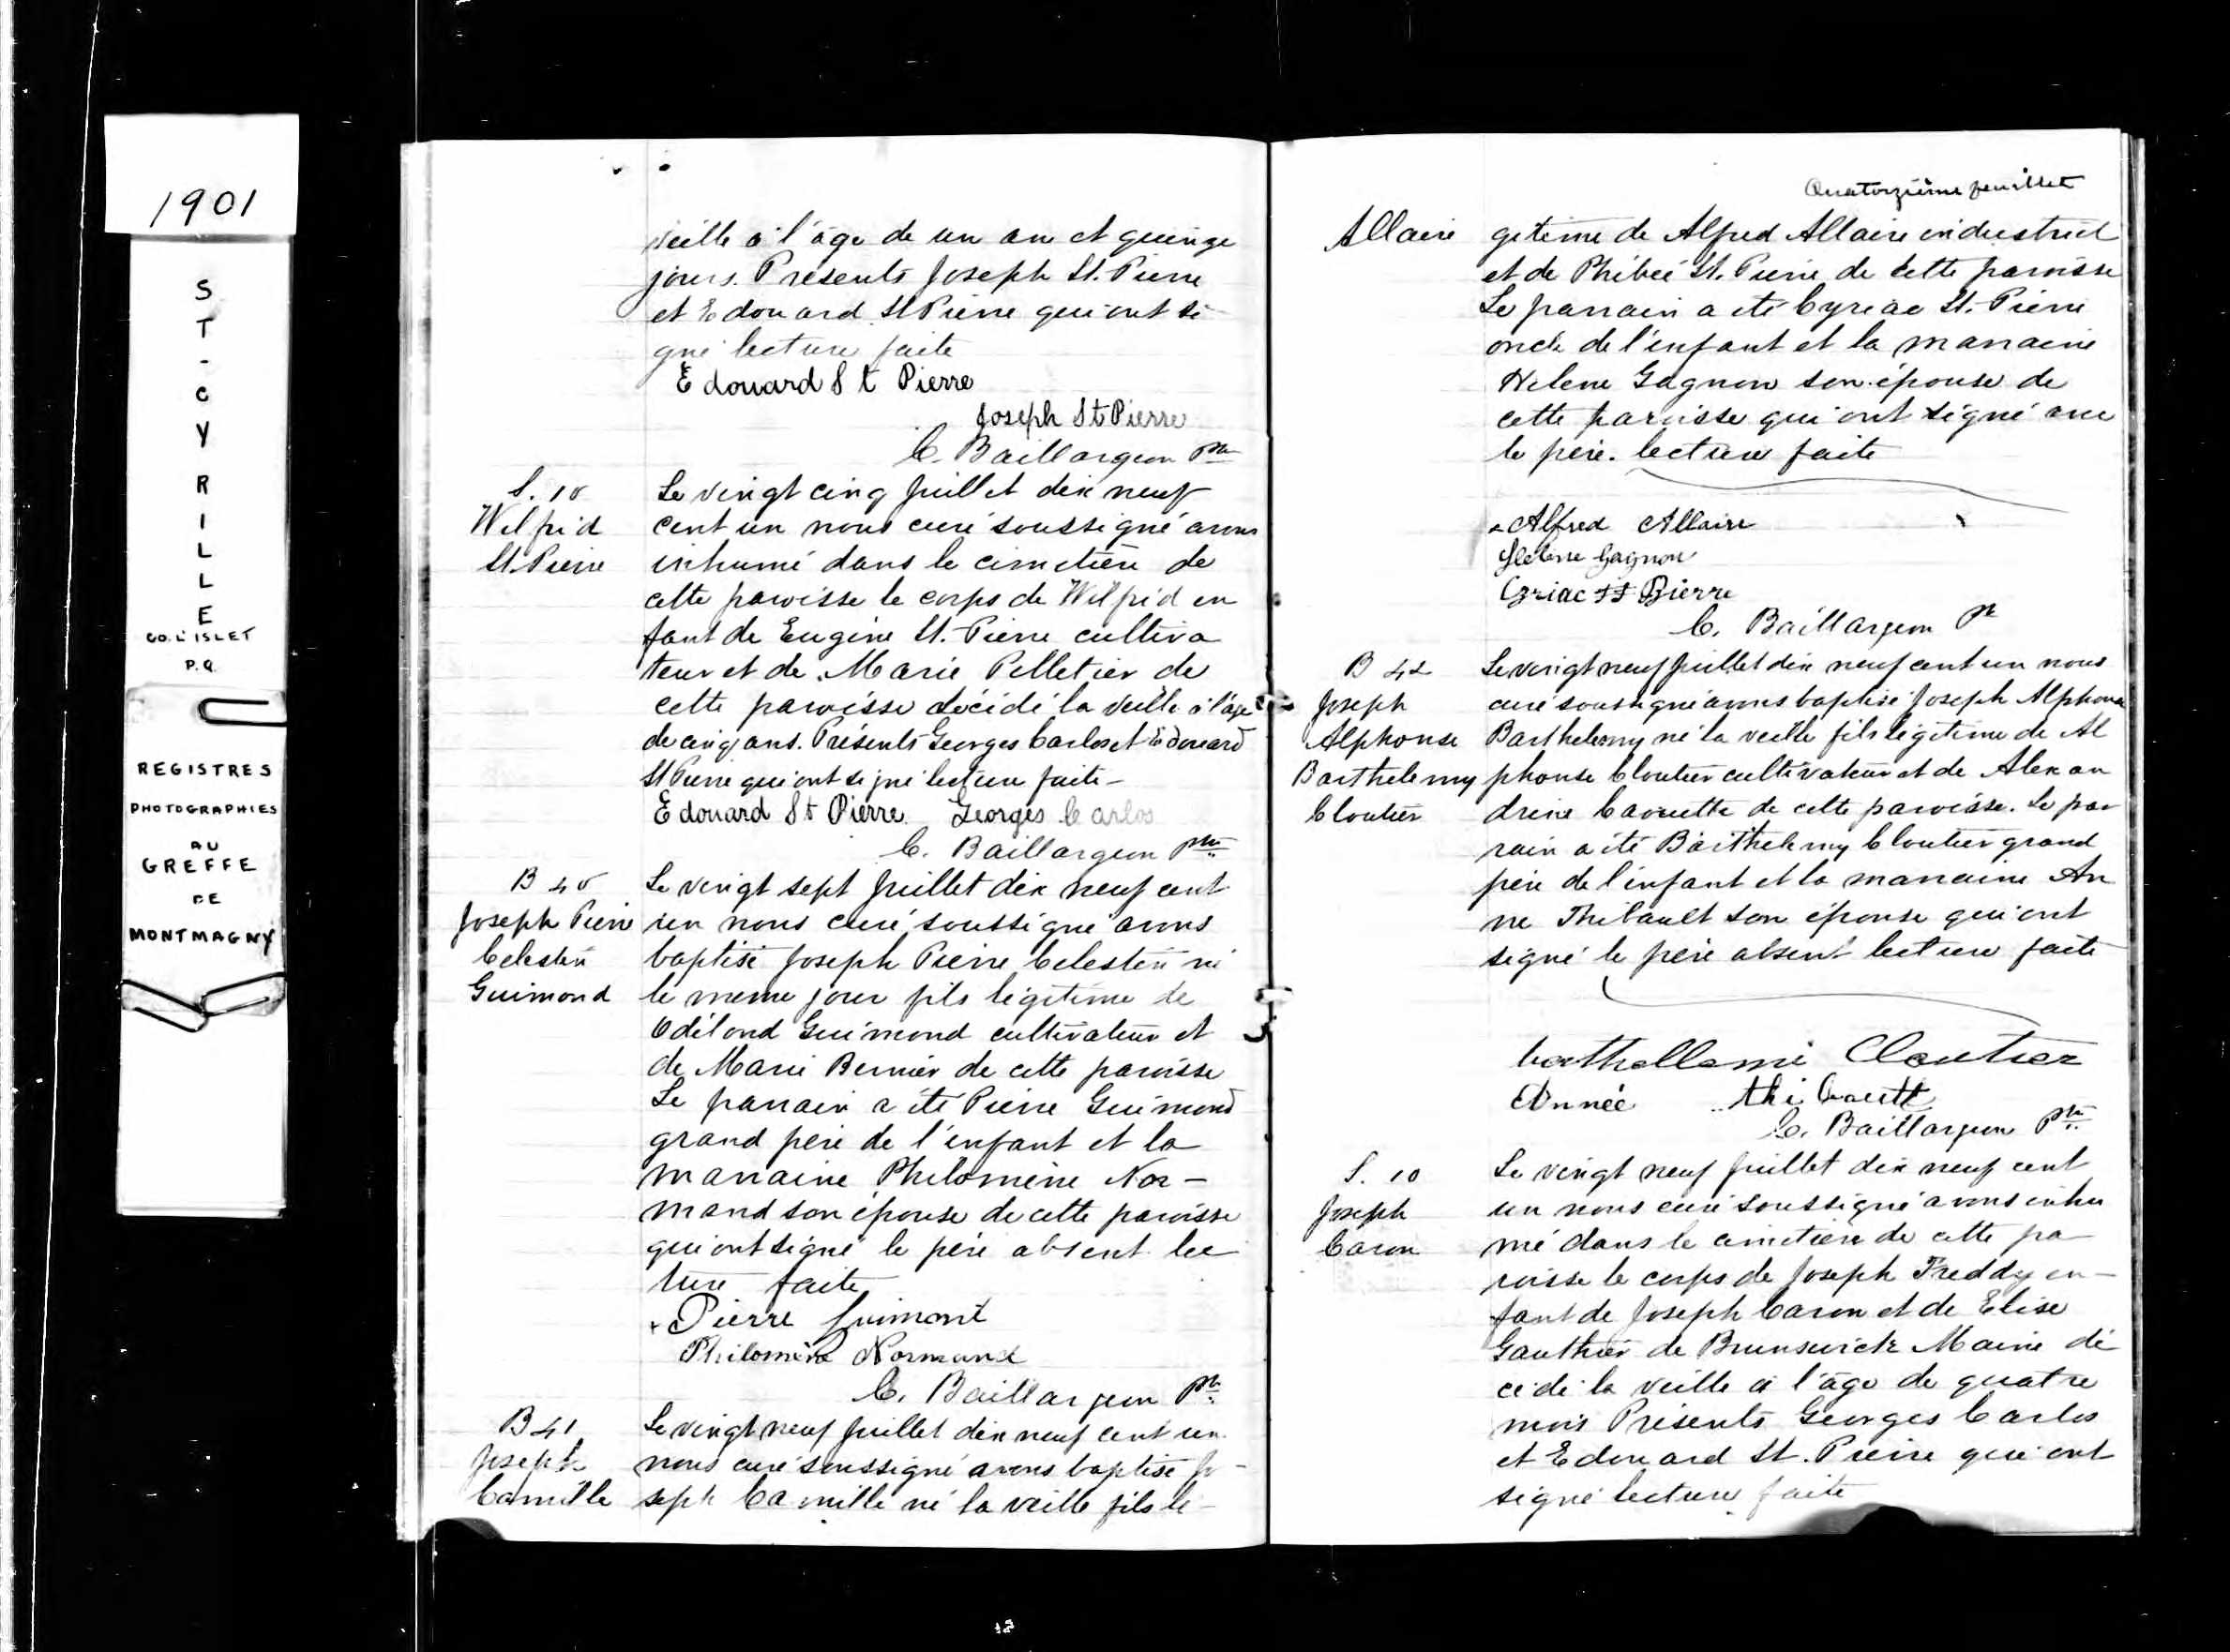 1901
ST-CYRILLE
CO. L'ISLET
P.Q.
REGISTRES
PHOTOGRAPHIES
AU
GREFFE
DE
MONTMAGNY
veille à l'âge de un an et quinze
jours. Présents Joseph St. Pierre
et Edouard St Pierre qui ont si-
gné lecture faite
Edouard St Pierre
Joseph St Pierre
C. Baillargeon Ptre
S. 10
Wilfrid
St. Pierre
Le vingt cinq Juillet dix neuf
cent un nous curé soussigné avons
inhumé dans le cimetière de
cette paroisse le corps de Wilfrid en
fant de Eugène St. Pierre cultiva
teur et de Marie Pelletier de
cette paroisse décédé la veille à l'âge
de cinq ans. Présents Georges Carlos et Edouard
St Pierre qui ont signé lecture faite-
Edouard St Pierre Georges Carlos
C. Baillargeon Ptre
B 40
Joseph Pierre
Celestin
Guimond
Le vingt sept Juillet dix neuf cent
un nous curé soussigné avons
baptisé Joseph Pierre Celestin né
le meme jour fils légitime de
Odilond Guimond cultivateur et
de Marie Bernier de cette paroisse
Le parrain a été Pierre Guimond
grand père de l'enfant et la
marraine Philomène Nor-
mand son épouse de cette paroisse
qui ont signé le père absent lec
ture faite
Pierre Guimont
Philomène Normand
C. Baillargeon Ptre
B 41
Joseph
Camille
Le vingt neuf Juillet dix neuf cent un
nous curé soussigné avons baptisé Jo-
seph Camille né la veille fils lé-
Quatorzième feuillet
Allaire
gitime de Alfred Allaire industriel
et de Phibée St. Pierre de cette paroisse
Le parrain a été Cyriac St. Pierre
oncle de l'enfant et la marraine
Helene Gagnon son épouse de
cette paroisse qui ont signé avec
le père. lecture faite
Alfred Allaire
Helene Gagnon
Cyriac St Pierre
C. Baillargeon Ptre
B 42
Joseph
Alphonse
Barthelemy
Cloutier
Le vingt neuf Juillet dix neuf cent un nous
curé soussigné avons baptisé Joseph Alphonse
Barthelemy né la veille fils légitime de Al
phonse Cloutier cultivateur et de Alexan
drine Caouette de cette paroisse. Le par
rain a été Barthelemy Cloutier grand
père de l'enfant et la marraine An
ne Thibault son épouse qui ont
signé le père absent lecture faite
berthellemi Cloutier
Année thibault
C. Baillargeon Ptre
S. 10
Joseph
Caron
Le vingt neuf Juillet dix neuf cent
un nous curé soussigné avons inhu
mé dans le cimetière de cette pa-
roisse le corps de Joseph Freddy en-
fant de Joseph Caron et de Elise
Gauthier de Brunswick Maine dé
cédé la veille à l'âge de quatre
mois Présents Georges Carlos
et Edouard St. Pierre qui ont
signé lecture faite